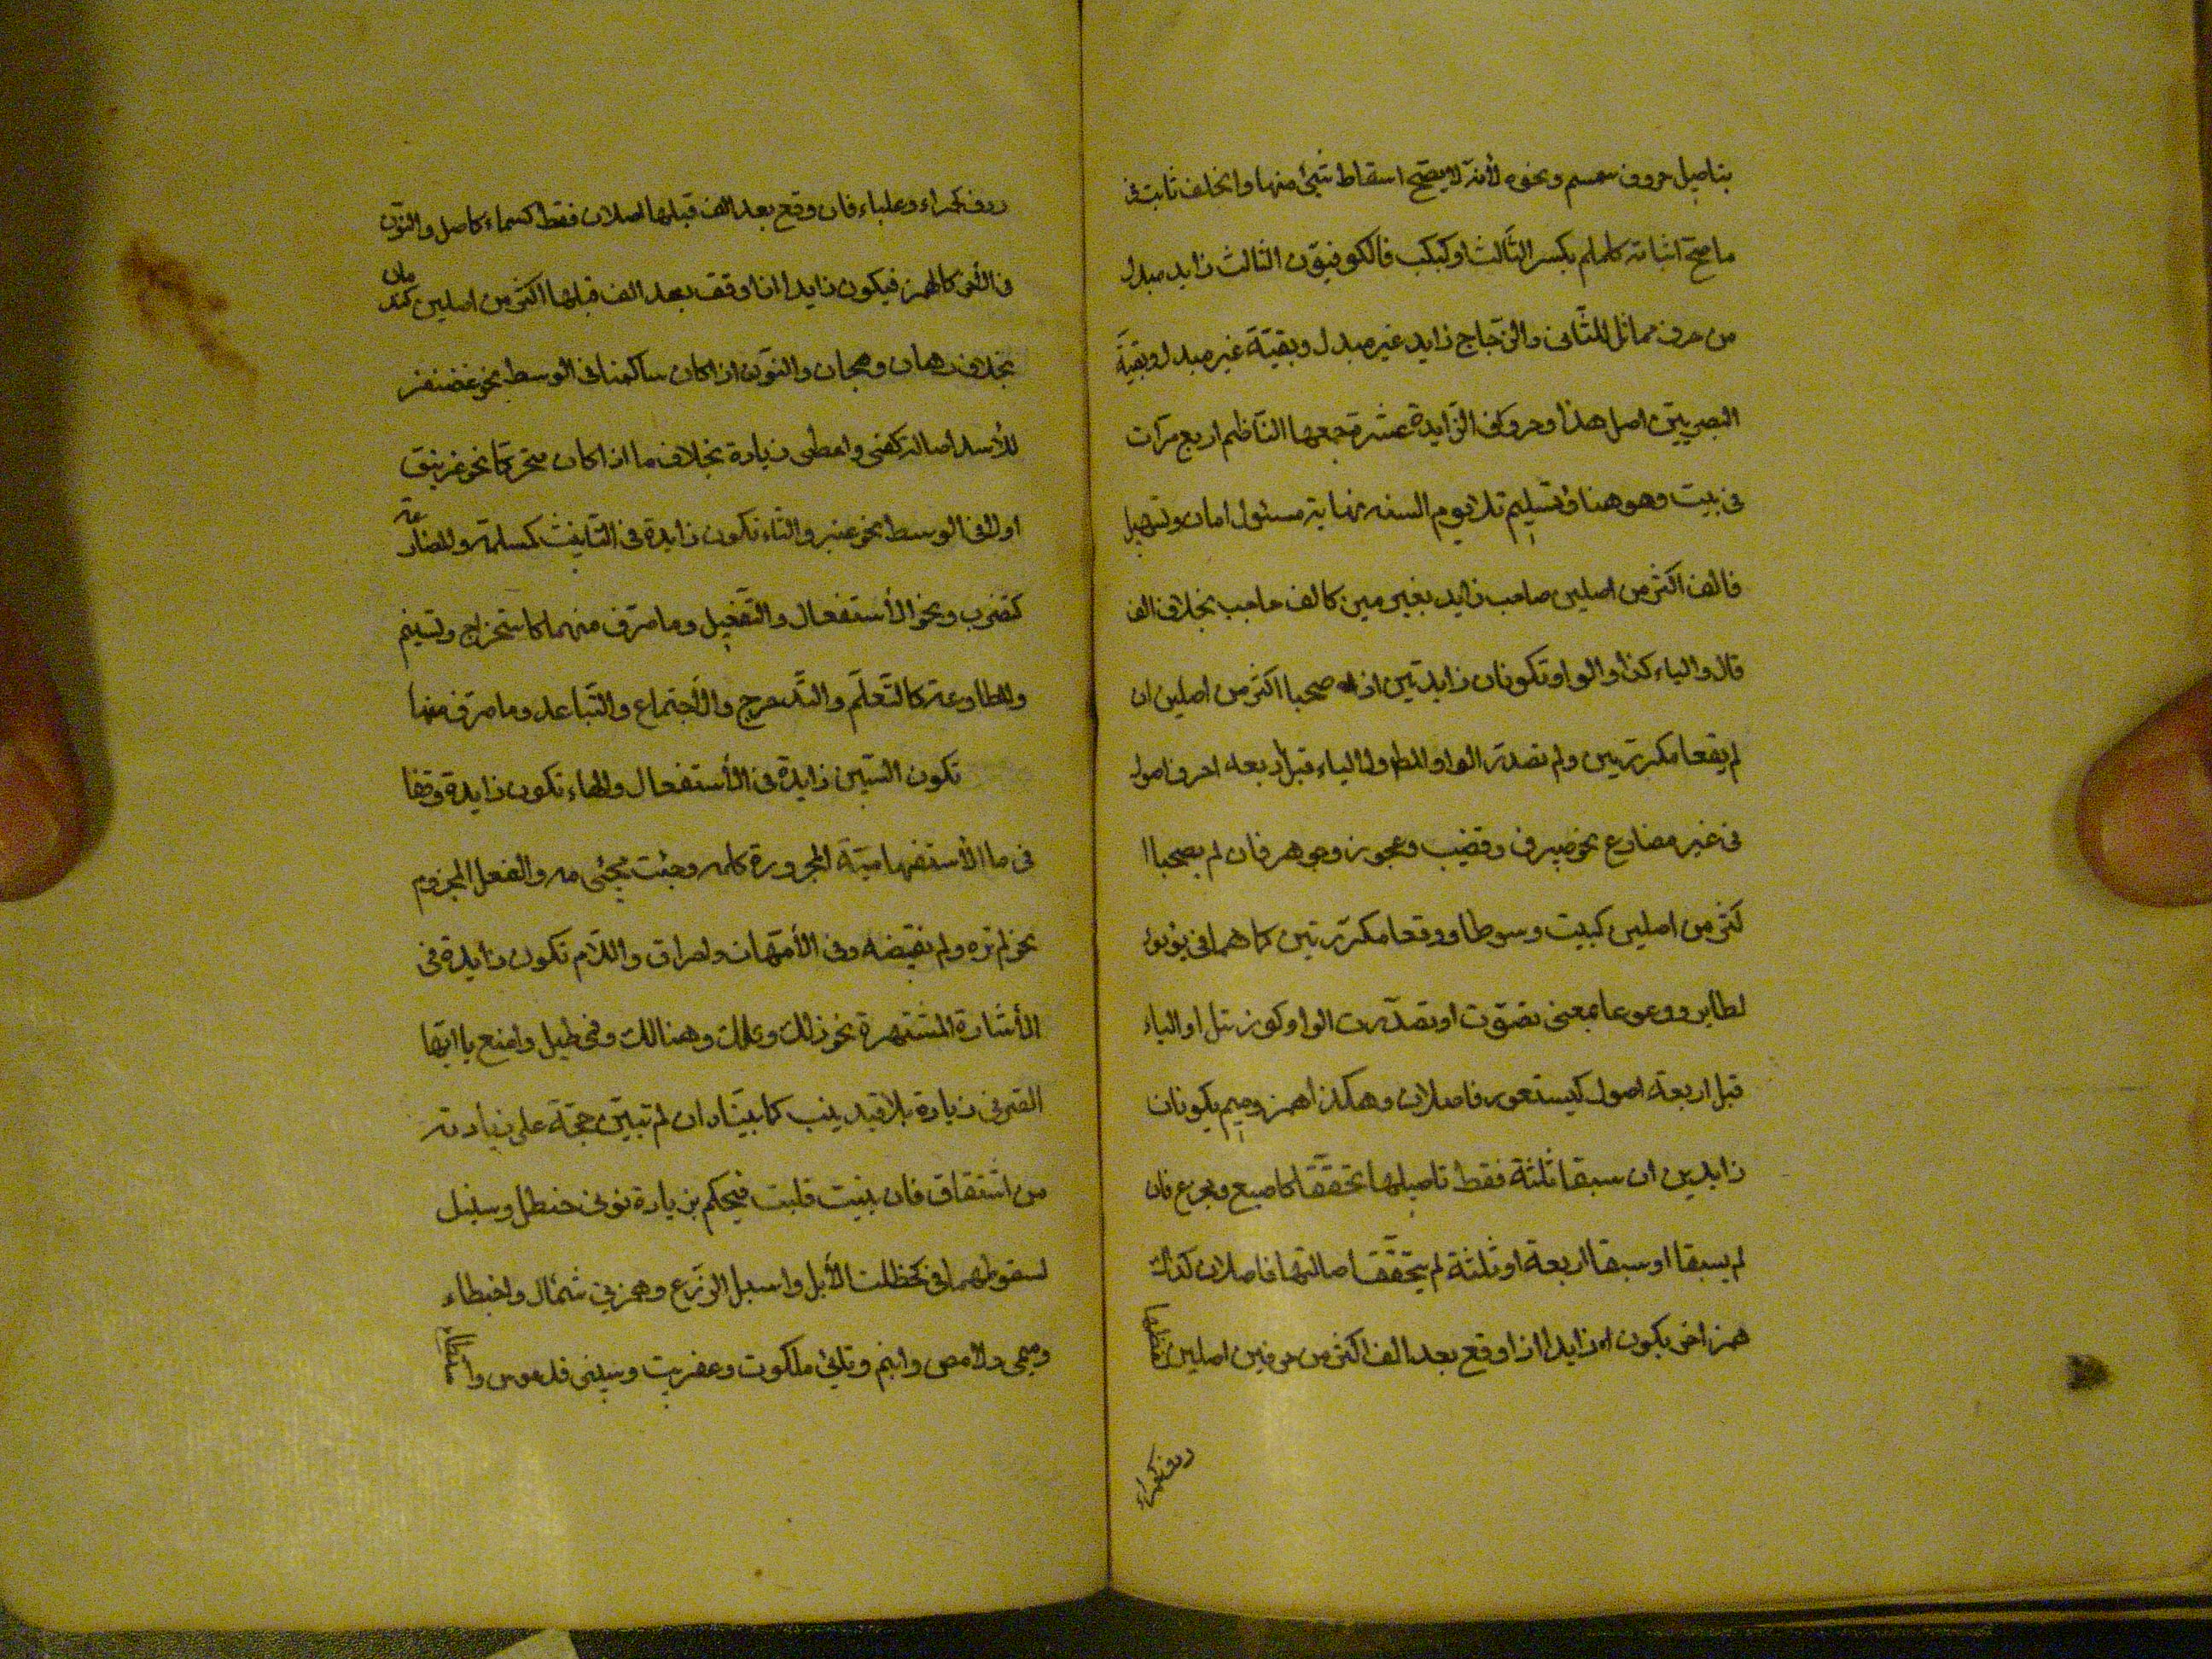 بتاصيل حروف سمسم ونحوه لأنه لا يصح اسقاط شيئ منها والخلف ثابت في
ما صح اثباته كلملم بكسر الثالث او كبكب فالكوفيون الثالث زايد مبدل
من حرف مماثل للثاني والزجاج زايد غير مبدل وبقية غير مبدل وبقية
البصريين اصل هذا وحروف الزايدة عشرة جمعها الناظم اربع مرات
في بيت وهو هنا وتسليم تلا يوم انسه نهاية مسئول امان وتسهيل
فالف اكثر من اصلين صاحب زايد بغير مين كالف حاجب بخلاف الف
قال والياء كذا والواو تكونان زايدتين اذا صحبا اكثر من اصلين ان
لم يقعا مكررتين ولم تصدر الواو مطلقا ولا الياء قبل اربعه احرف اصول
في غير مضارع نحو صيرف وقضيب وعجوز وجوهر فان لم يصحبا ا
كثر من اصلين كبيت وسوط او وقعا مكررتين كما هما في يؤيؤ
لطاير ووعوعا بمعنى تصوت او تصدرت الواو كورنتل او الياء
قبل اربعة اصول كيستعور فاصلان وهكذا همز وميم يكونان
زايدين ان سبقا ثلثة فقط تاصيلها تحققا كاصبع ومخرع فان
لم يسبقا او سبقا اربعة او ثلثة لم يتحقق اصالتها فاصلان كذاك
همز اخر يكون اه زايدا اذا وقع بعد الف اكثر من حرفين اصلين
ردف كحمراء
ردف كحمراء وعلباء فان وقع بعد الف قبلها اصلان فقط كسماء كاصل والنون
في الآخر كالهمز فيكون زايدا اذا وقف بعد الف قبلها اكثر من اصلين كندمان
بخلاف رهان وهجان والنون اذا كان ساكنا في الوسط نحو غضنفر
للأسد اصالة كفى واعطى زيادة بخلاف ما اذا كان متحركا نحو غرنيق
او لا في الوسط نحو عنبر والتاء تكون زايدة في التأنيث كمسلمة والمضارعة
كتضرب ونحو الأستفعال والتفعيل وما صرف منهما كاستخراج وتسنيم
والمطاوعة كالتعلم والتدحرج والأجتماع والتباعد وما صرف منها
تكون السين زايدة في الأستفعال والهاء تكون زايدة وقفا
في ما الأستفهامية المجرورة كلمه وجئت مجئ مه والفعل المجزوم
نحو لم تره ولم نقيضه وفي الأمهات واهراق واللام تكون زايدة في
الأشارة المشتهرة نحو ذلك وتلك وهنالك وفي طيل وامنع يا ايها
الصرفي زيادة بلا قيد يثبت كما بيناه ان لم تبين حجة على زيادته
من اشتقاق فان بنيت قلبت فيحكم بزيادة نوني حنظل وسنبل
لسقوطهما في كحظلت الأبل واسبل الزرع وهمزتي شمأل واحبطاء
وميمي دلامص وابنم وتائي ملكوت وعفريت وسيني قدموس و